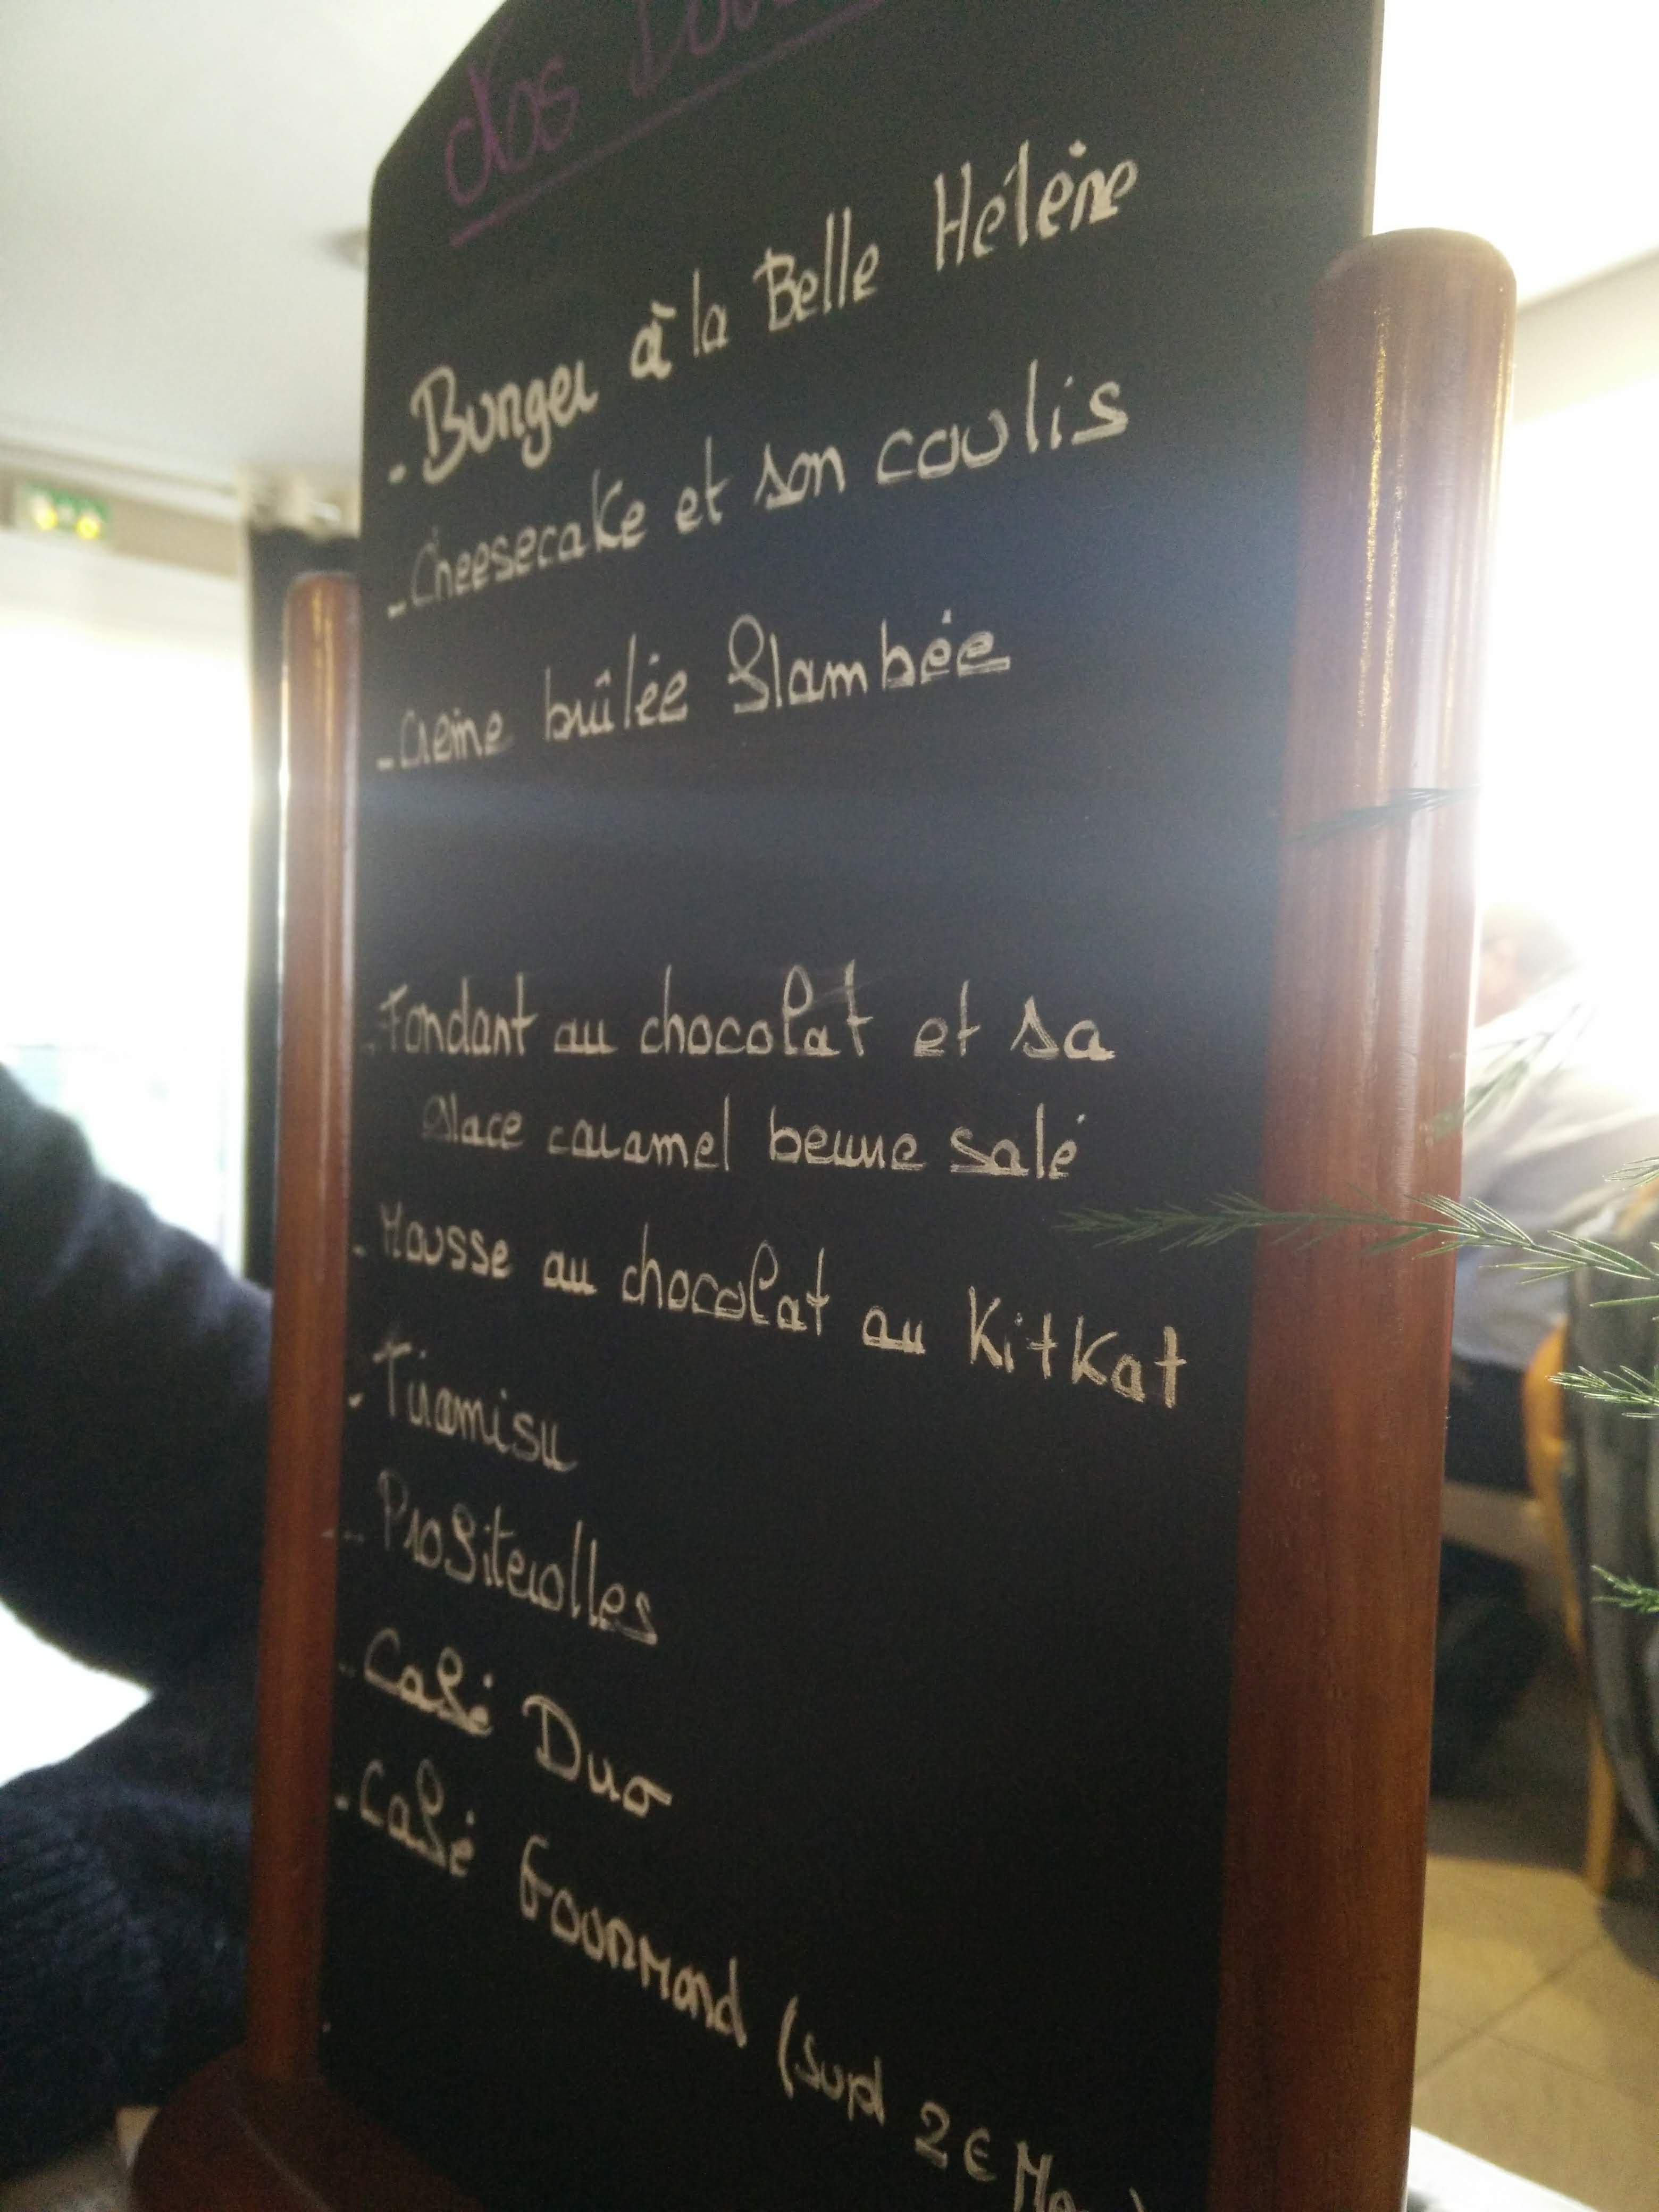 Nos
- Burger à la Belle Hélène
- Cheesecake et son coulis
- Crème brûlée flambée
- Fondant au chocolat et sa
glace caramel beurre salé
- Mousse au chocolat au KitKat
- Tiramisu
- Profiterolles
- Café Duo
- Café Gourmand (supl 2€